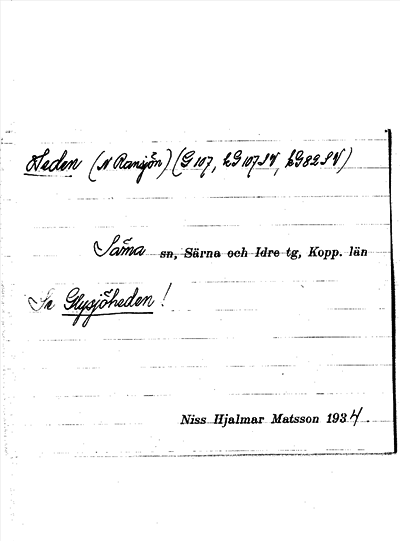 Heden (N Ransjön) (G 107, kG 107 SV, kG 82 SV)
Särna sn, Särna och Idre tg, Kopp. län
Se Glysjöheden!
Niss Hjalmar Matsson 1934.